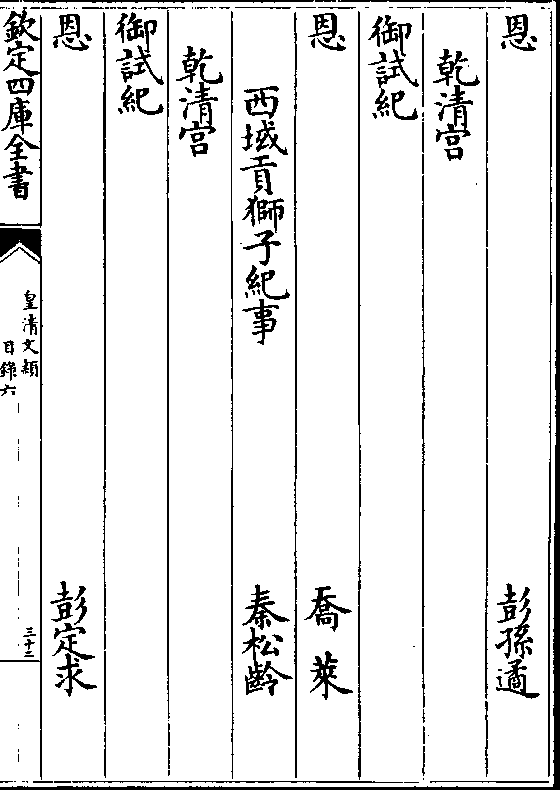 恩　彭孫遹
乾清宮
御試紀
恩　喬萊
西域貢獅子紀事　秦松齡
乾清宮
御試紀
恩　彭定求
欽定四庫全書
皇清文穎
目錄六
三十二